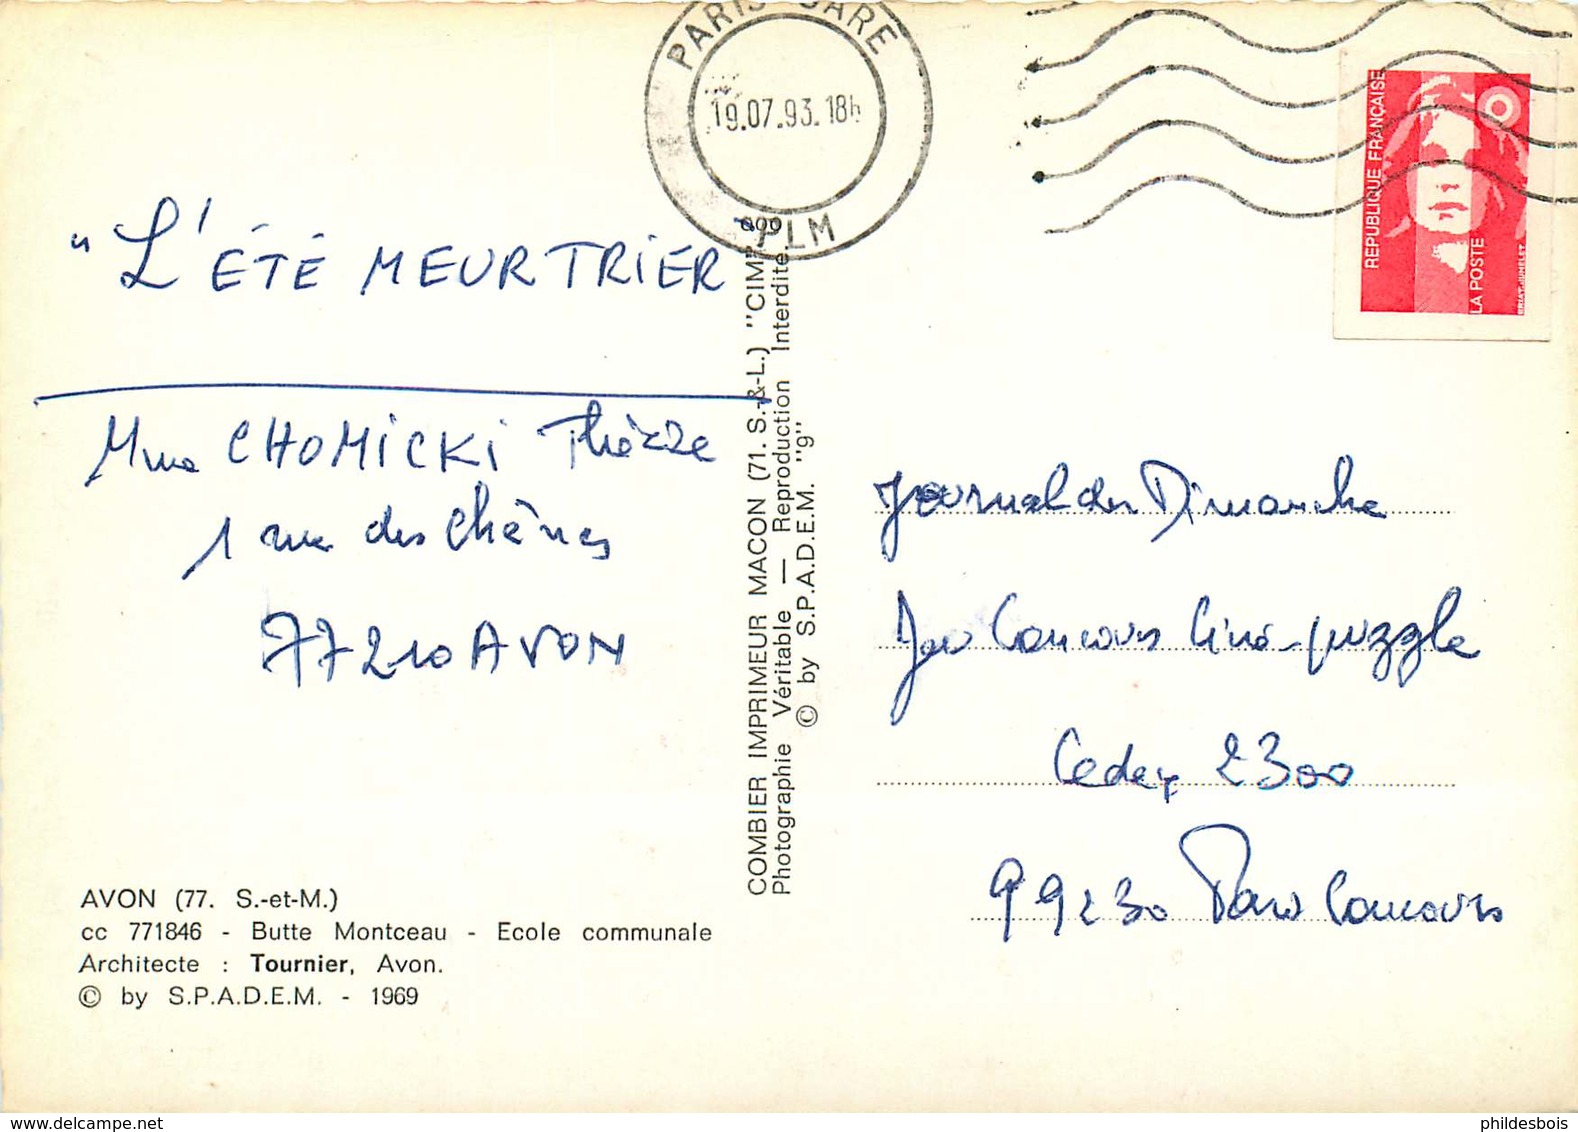 PARIS GARE
19.07.93.18h
PLM
REPUBLIQUE FRANÇAISE
LA POSTE
BRIAT-JUMELET
"L'ÉTÉ MEURTRIER
Mme CHOMICKI Thérèse
1 rue des Chênes
77210 AVON
COMBIER IMPRIMEUR MACON (71. S.-&-L.) "CIM"
Photographie Véritable — Reproduction Interdite
© by S.P.A.D.E.M. "9"
Journal du Dimanche
Jeu Concours Ciné-puzzle
Cedex 2300
99230 Paris Concours
AVON (77. S.-et-M.)
cc 771846 - Butte Montceau - Ecole communale
Architecte : Tournier, Avon.
© by S.P.A.D.E.M. - 1969
philesdesbois